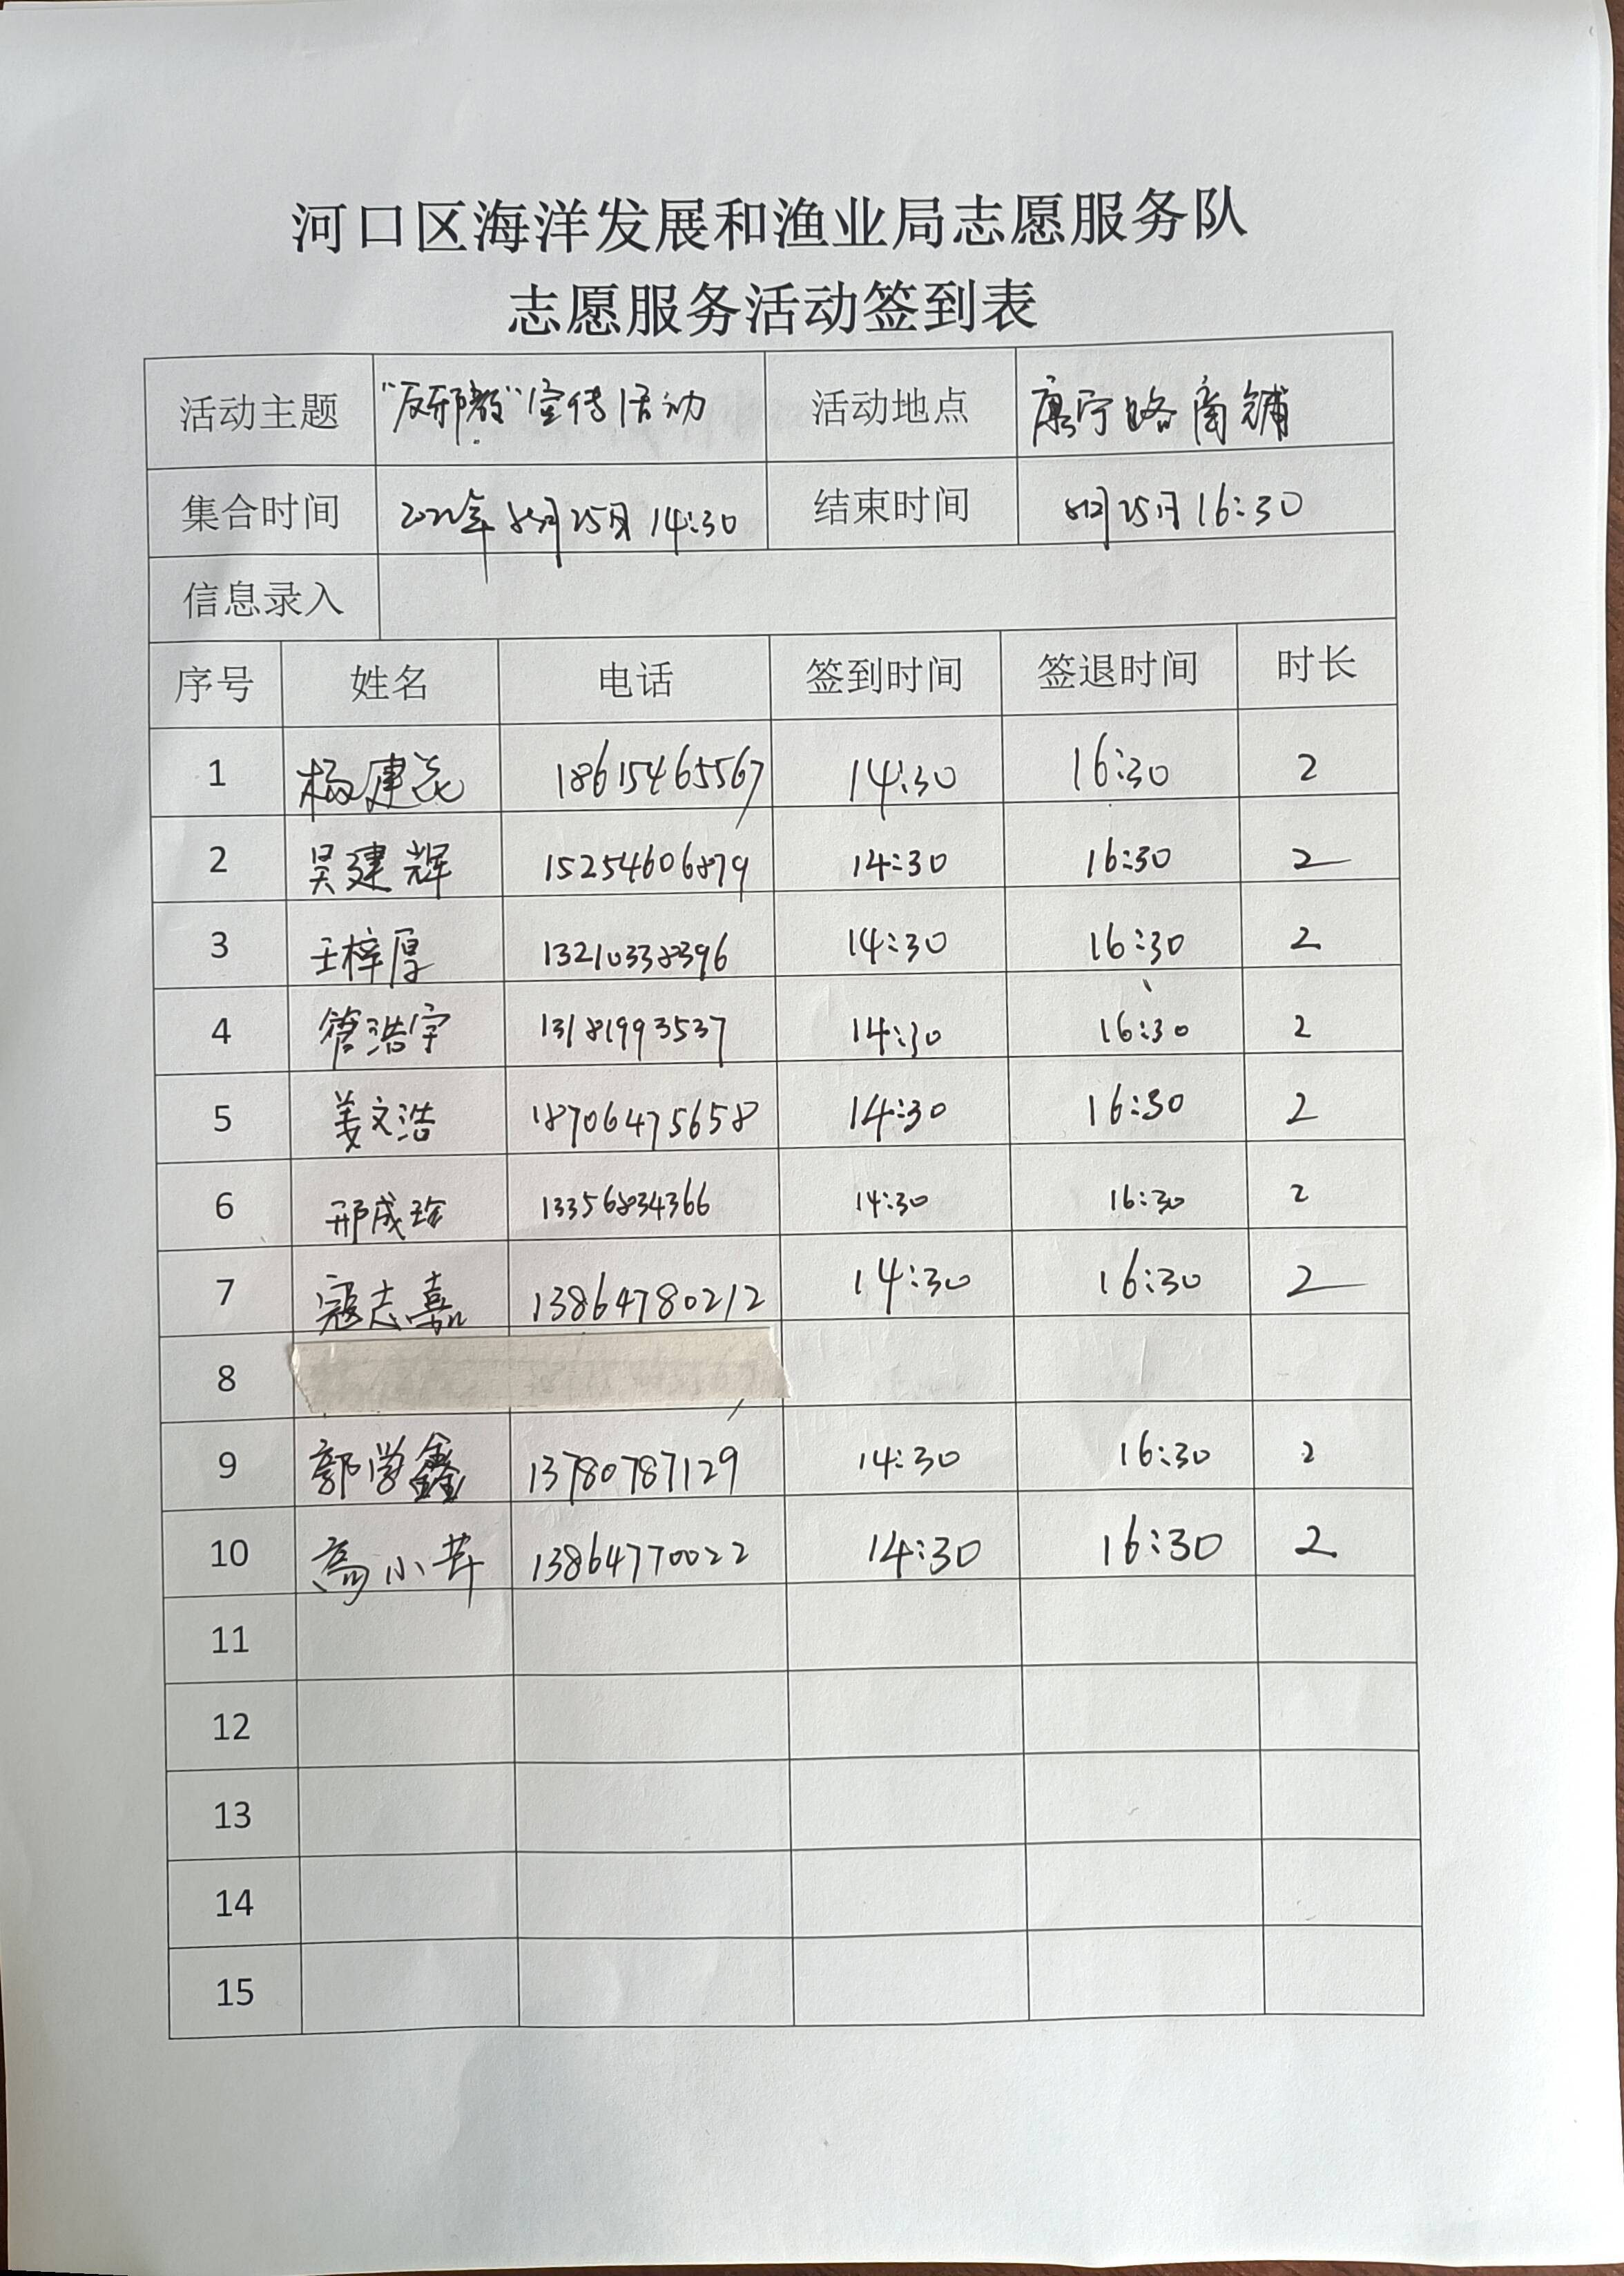 河口区海洋发展和渔业局志愿服务队
志愿服务活动签到表
活动主题 "反邪教"宣传活动 活动地点 康宁路商铺
集合时间 2022年 月25日 14:30 结束时间 月25日16:30
信息录入
序号 姓名 电话 签到时间 签退时间 时长
1 杨建 18615465567 14:30 16:30 2
2 吴建辉 15254606879 14:30 16:30 2
3 王梓厚 13210338396 14:30 16:30 2
4 管浩宇 13181993537 14:30 16:30 2
5 姜文浩 18706475658 14:30 16:30 2
6 邢成珍 13356834366 14:30 16:30 2
7 寇志嘉 13864780212 14:30 16:30 2
8
9 郭学鑫 13780787129 14:30 16:30 2
10 高小 13864770022 14:30 16:30 2
11
12
13
14
15